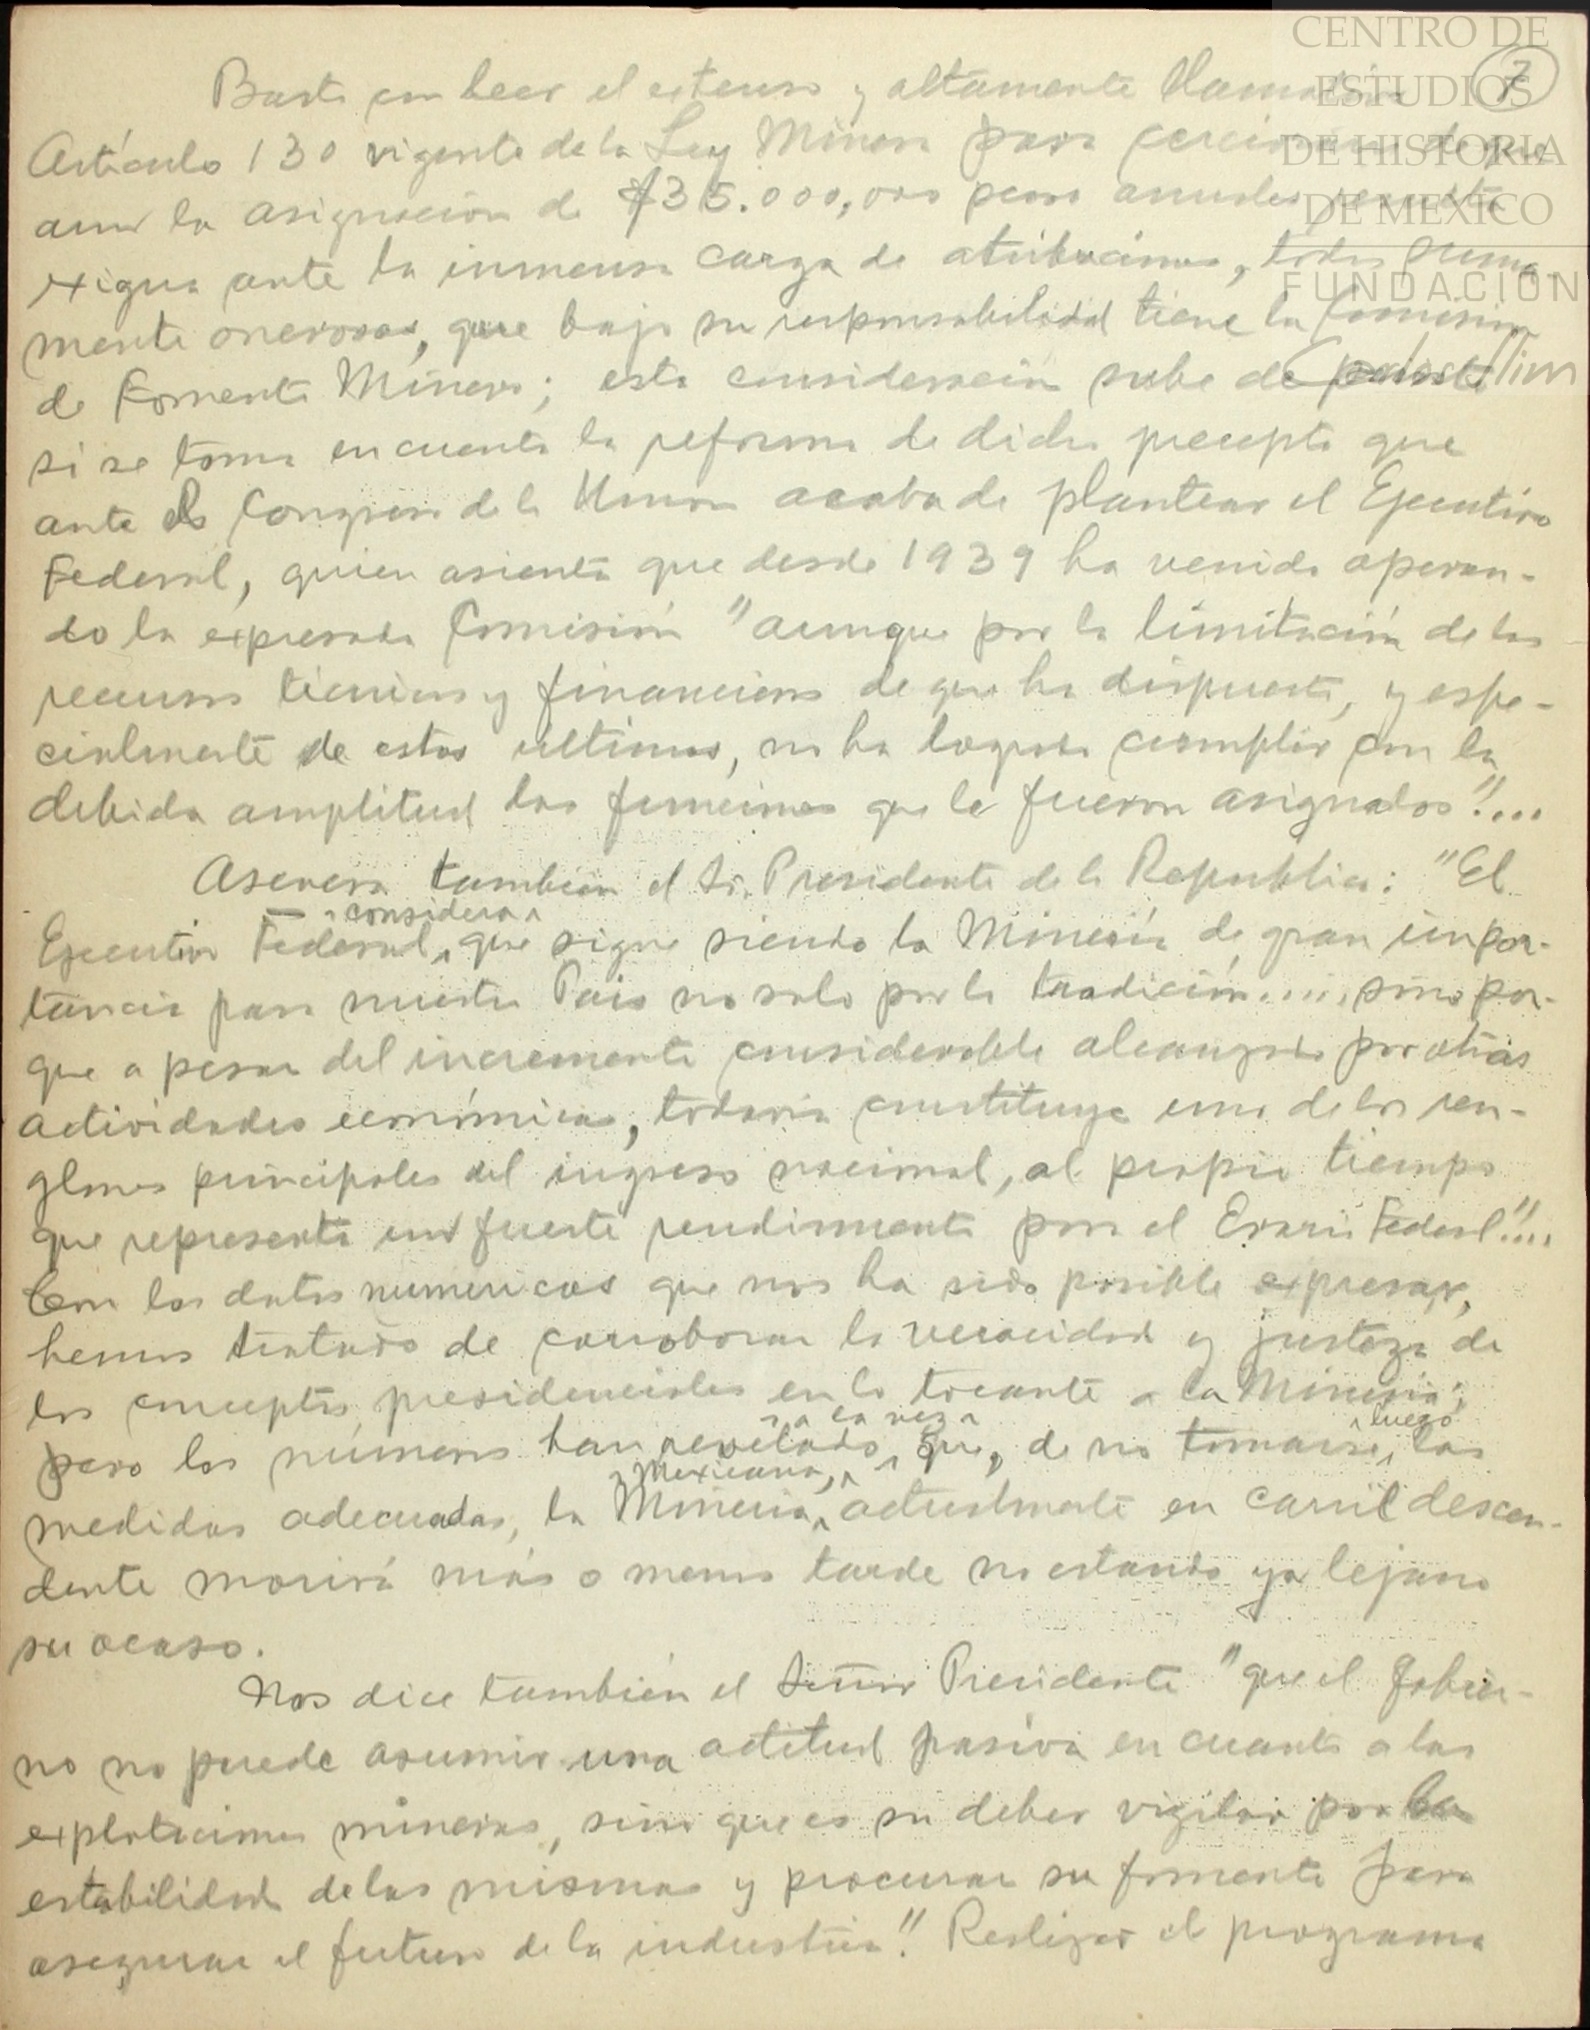 CENTRO DE
ESTUDIOS
DE HISTORIA
DE MEXICO
FUNDACIÓN
Carlos Slim
7
Basta con leer el extenso y altamente
Artículo 130 vigente de la Ley Minera para de que
aun la asignación de $35.000,000 pesos anuales resulta
exigua ante la inmensa carga de atribuciones, todas suma-
mente onerosas, que bajo su responsabilidad tiene la Comisión
de Fomento Minero; esta consideración sube de
si se toma en cuenta la reforma de dicho precepto que
ante el Congreso de la Union acaba de plantear el Ejecutivo
Federal, quien asienta que desde 1939 ha venido operan-
do la expresada Comisión "aunque por la limitación de los
recursos técnicos y financieros de que ha dispuesto, y espe-
cialmente de estos ultimos, no ha logrado cumplir con la
debida amplitud las funciones que le fueron asignadas"....
Asevera tambien el Sr. Presidente de la Republica: "El
Ejecutivo Federal, considera que sigue siendo la Minería de gran impor-
tancia para nuestro Pais no solo por la tradición....., sino por-
que a pesar del incremento considerable alcanzado por otras
actividades económicas, todavía constituye uno de los ren-
glones principales del ingreso nacional, al propio tiempo
que representa un fuerte rendimiento para el Erario Federal"....
Con los datos numericos que nos ha sido posible expresar,
hemos tratado de corroborar la veracidad y justeza de
los conceptos presidenciales en lo tocante a la Mineria;
pero los números han revelado a la vez que, de no tomarse luego las
medidas adecuadas, la Mineria Mexicana, actualmente en carril descen-
dente morirá más o menos tarde no estando ya lejano
su ocaso.
Nos dice también el Señor Presidente "que el Gobier-
no no puede asumir una actitud pasiva en cuanto a las
explotaciones mineras, sino que es su deber vigilar por la
estabilidad de las mismas y procurar su fomento para
asegurar el futuro de la industria". Realizar el programa